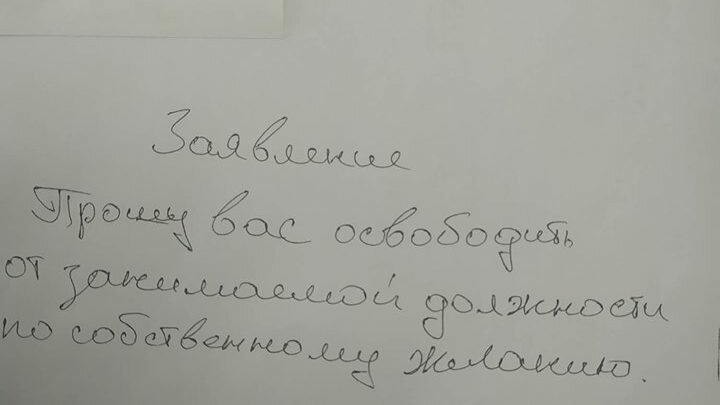 Заявление
Прошу вас освободить
от занимаемой должности
по собственному желанию.